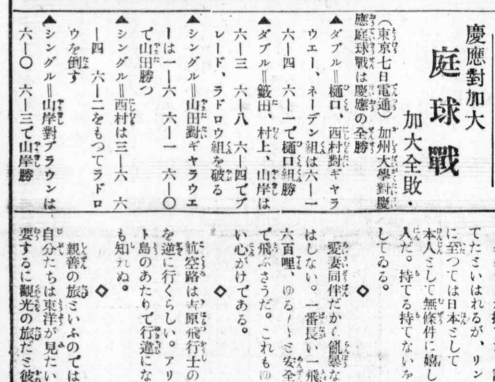 慶應對加大
庭球戰
加大全敗・
(東京七日電通) 加州大學對慶
應庭球戰は慶應の全勝
▲ダブル＝樋口、西村對ギャラ
ウエー、ネーデン組は六ー一
六ー四 六ー一で樋口組勝
▲ダブル＝籔田、村上、山岸は
六ー三 六ー八 六ー四でブ
レード、ラドロウ組を破る
▲シングル＝山田對ギャラウエ
ーは一ー六 六ー一 六ー〇
で山田勝つ
▲シングル＝西村は三ー六 六
ー四 六ー二をもつてラドロ
ウを倒す
▲シングル＝山岸對ブラウンは
六ー〇 六ー三で山岸勝
てたといはれるが、リン
に至つては日本として
本人として無條件に嬉し
人だ。持てる持てないを
してゐる。
◇
愛妻同伴だから亂暴な
はしない。一番長い一飛
六百哩、ゆる／＼と安全
で飛ぶさうだ。これもゆ
い心がけである。
◇
航空路は吉原飛行士の
を逆に行くらしい。アリ
ト島のあたりで行違にな
も知れぬ。
◇
親善の旅といふのでは
自分たちは東洋が見たい
要するに觀光の旅だと彼